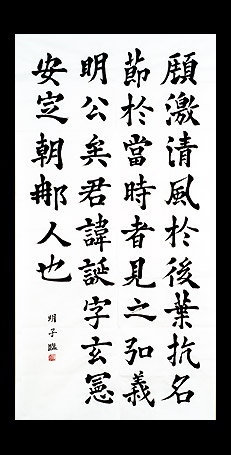 頋激清風於後葉抗名
節於當時者見之弘義
明公矣君諱誕字玄憲
安定朝那人也
明子臨